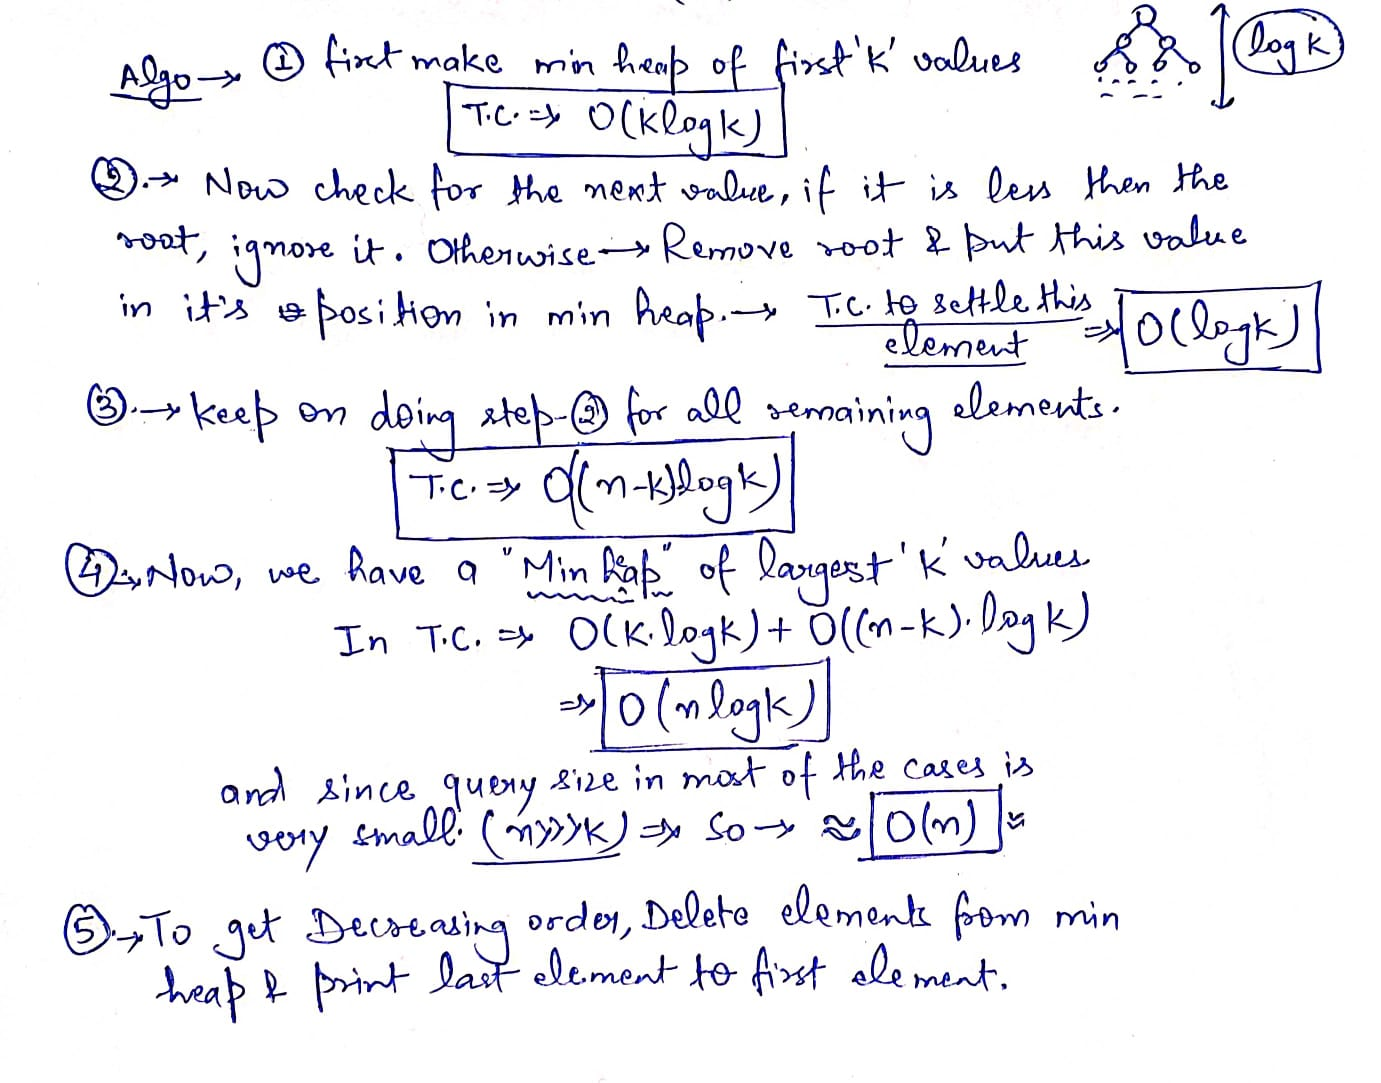 Algo → ① first make min heap of first 'K' values
log k
T.C. ⇒ O(K log k)
②. → Now check for the next value, if it is less then the
root, ignore it. Otherwise → Remove root & put this value
in it's position in min heap. → T.C. to settle this element ⇒ O(log k)
③. → Keep on doing step-② for all remaining elements.
T.C. ⇒ O((n-k) log k)
④ → Now, we have a "Min heap" of largest 'K' values
In T.C. ⇒ O(K. log k) + O((n-k). log k)
⇒ O(n log k)
and since query size in most of the cases is
very small. (n>>>K) ⇒ So → ≈ O(n)
⑤ → To get Decreasing order, Delete elements from min
heap & print last element to first element.